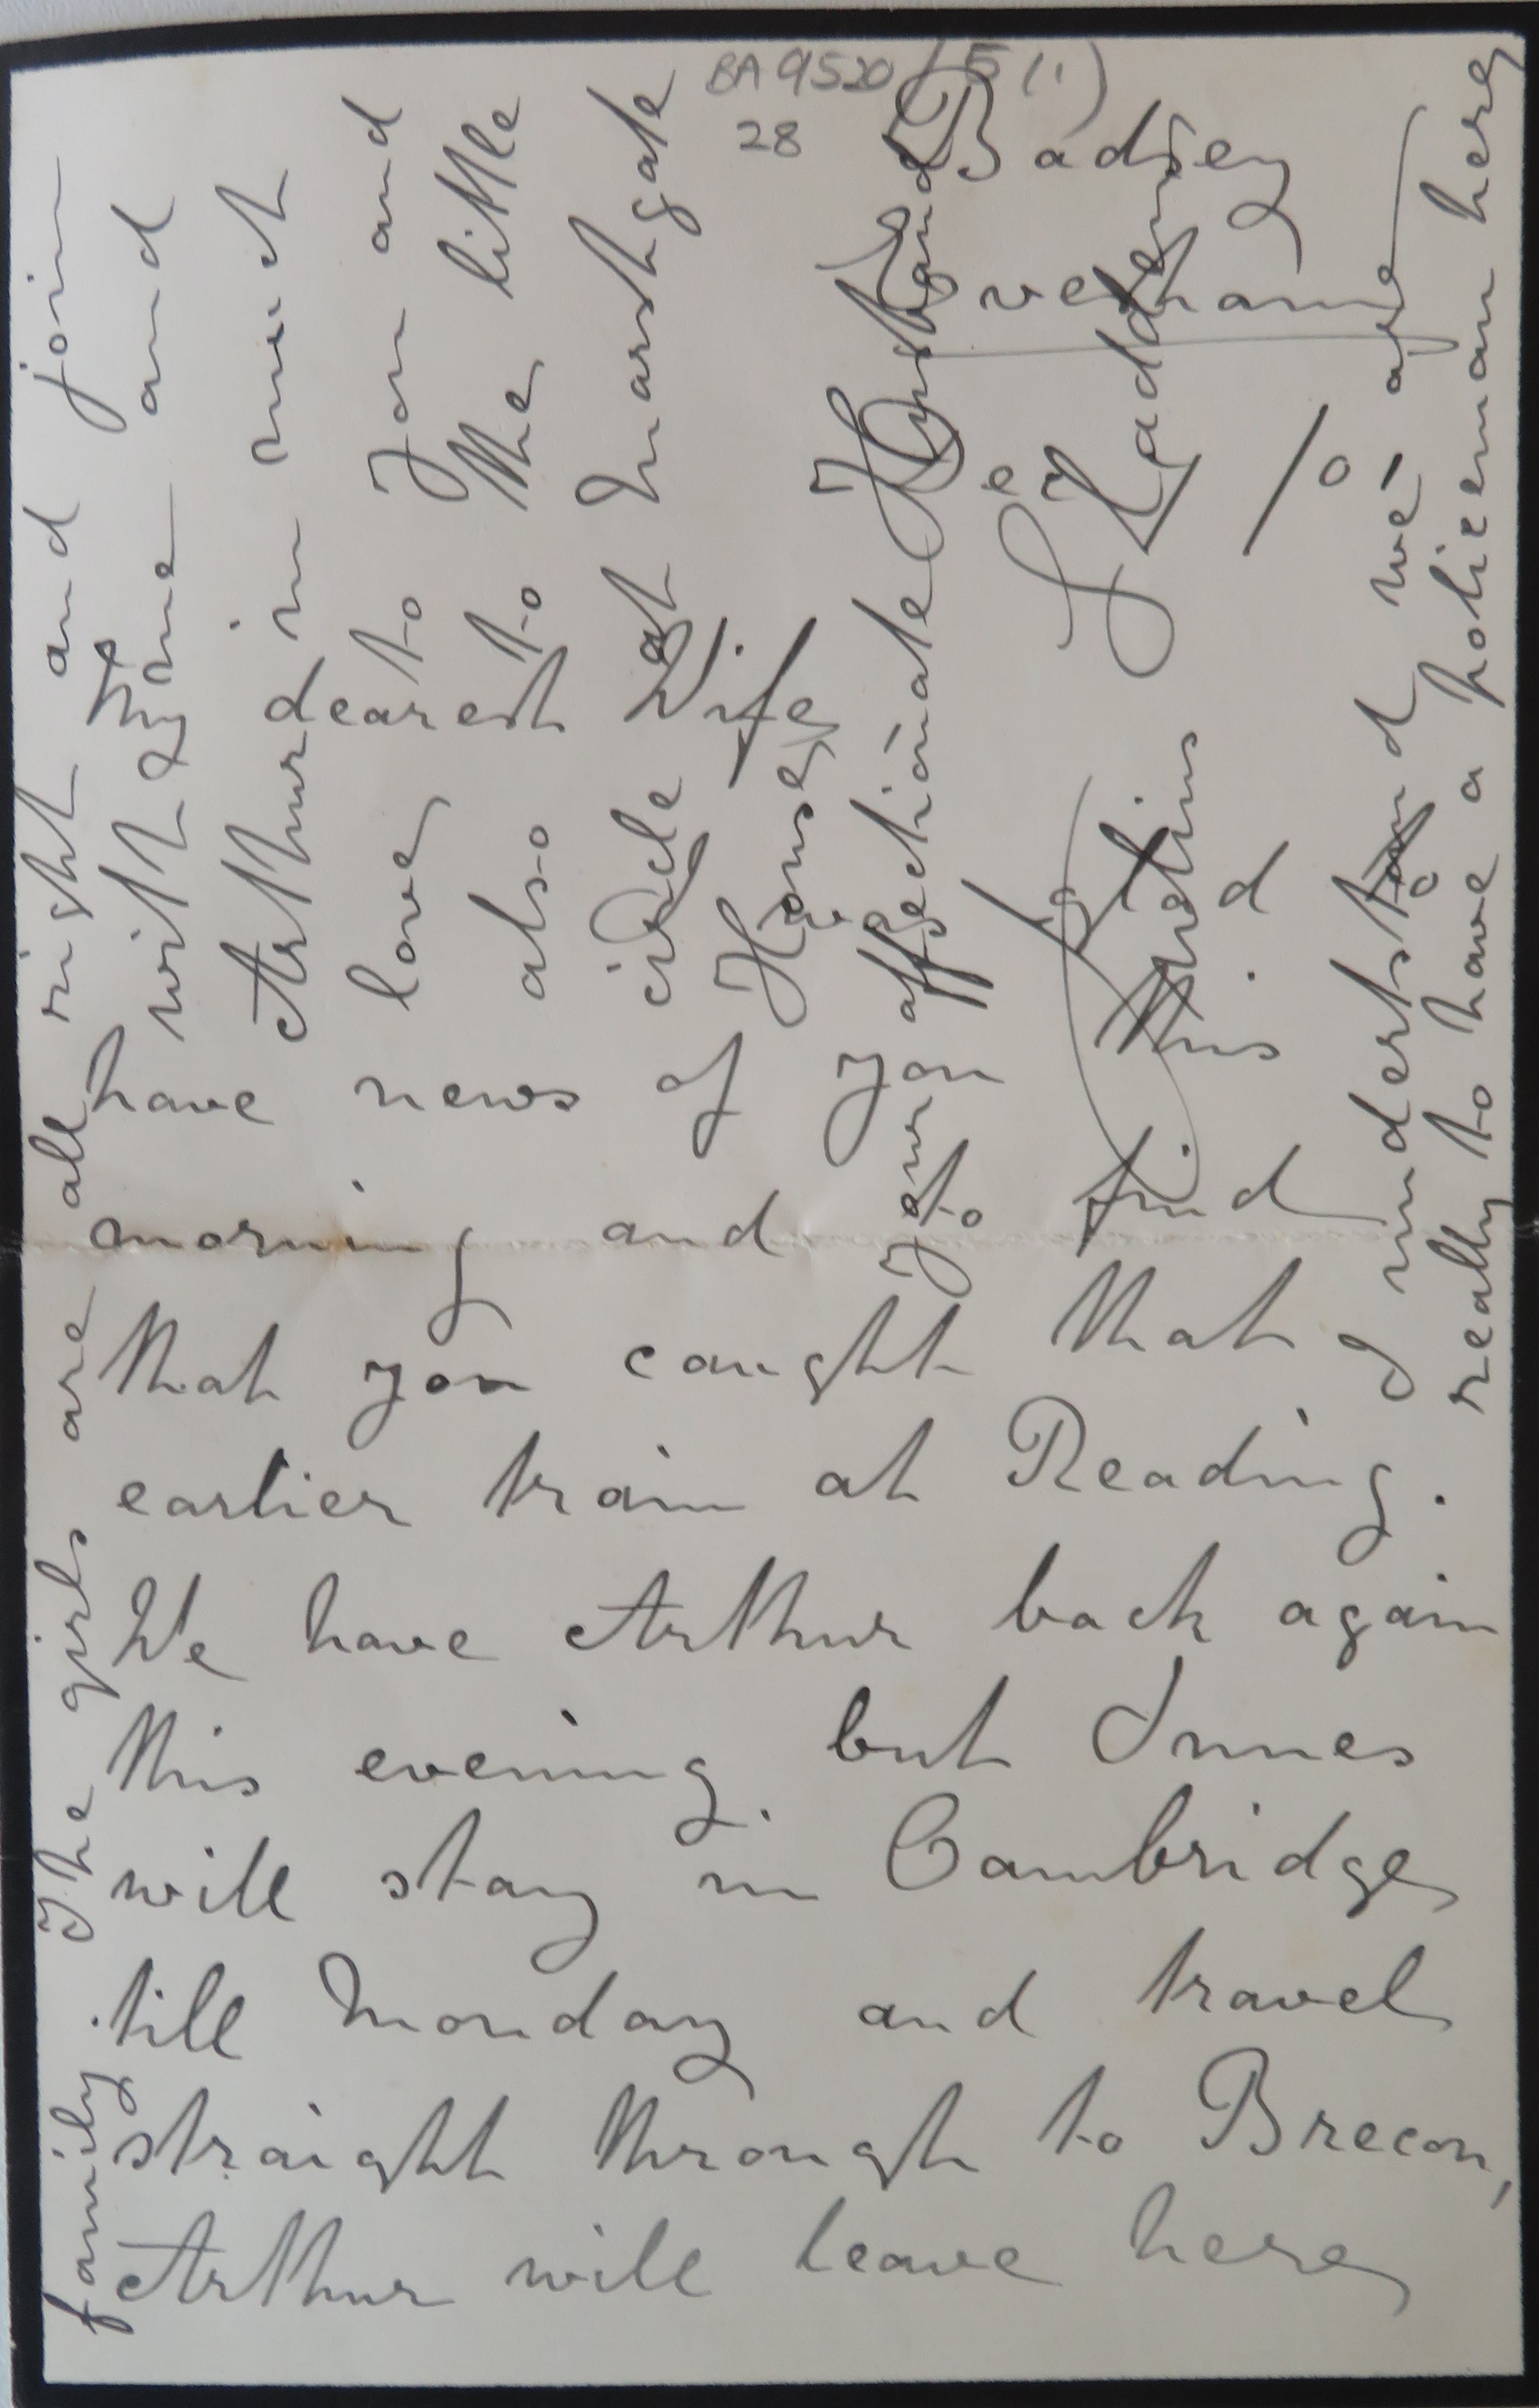 BA 9520/5 (i)
28
Badsey
Evesham
My dearest Wife
glad to
have news of you this
morning and to find
that you caught that
earlier train at Reading.
We have Arthur back again
this evening, but Innes
will stay in Cambridge
till Monday and travel
straight through to Brecon,
Arthur will leave here
family. The girls are all right and join
with me and
Arthur in much
love to you and
also to the little
circle at Marshgate
House,
Your affectionate Husband
Julius Sladden
I understand we are
really to have a policeman here